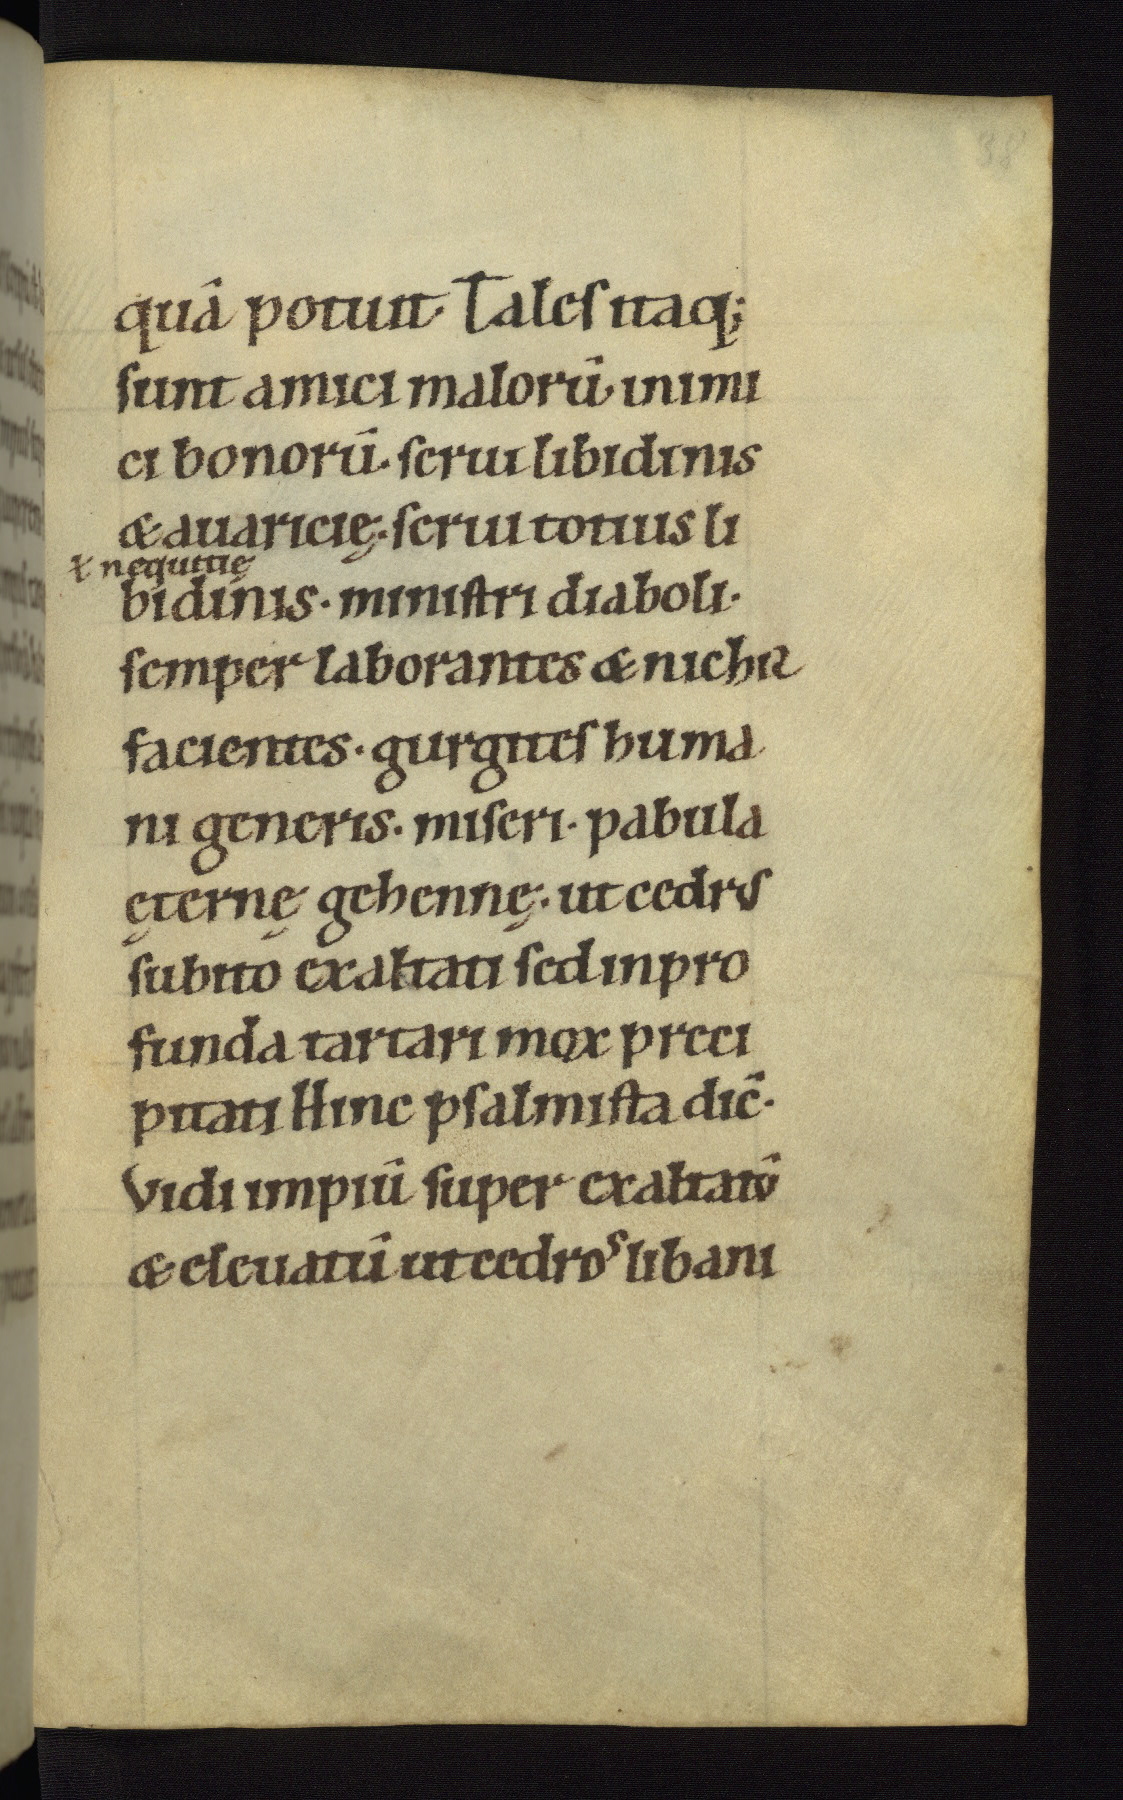 38
quā potuit. Tales itaq;
sunt amici malorū. inimi
ci bonorū. serui libidinis
& auaricię. serui totius li
ł nequitię
bidinis. ministri diaboli.
semper laborantes & nichil
facientes. gurgites huma
ni generis. miseri. pabula
ęternę gehennę. ut cedrus
subito exaltati sed in pro
funda tartari mox preci
pitati Hinc psalmista dic̄.
Vidi impiū super exaltatū
& eleuatū ut cedros libani